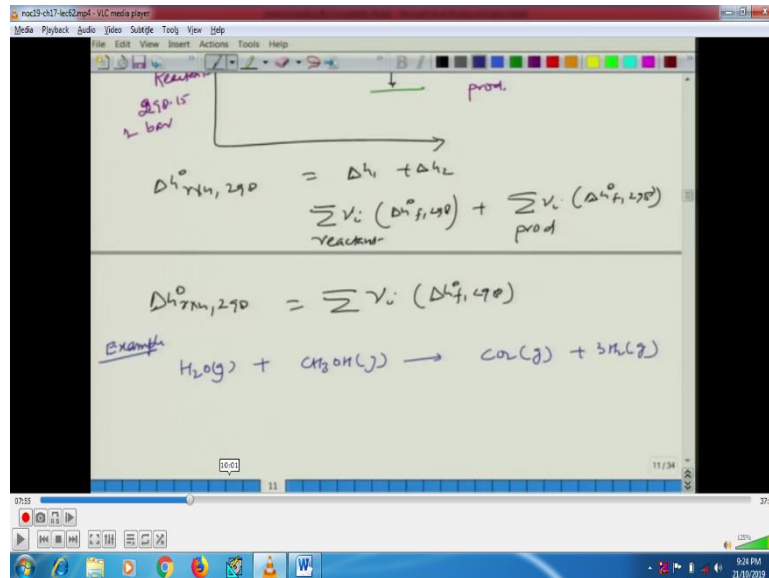 noc19-ch17-lec62.mp4 - VLC media player
Media Playback Audio Video Subtitle Tools View Help
File Edit View Insert Actions Tools Help
Reactant
298.15
1 bar
prod.
Δh°rxn,298 = Δh₁ + Δh₂
Σ νi (Δh°f,298) + Σ νi (Δh°f,298)
reactant prod
Δh°rxn,298 = Σ νi (Δh°f,298)
Example
H₂O(g) + CH₃OH(g) → CO₂(g) + 3H₂(g)
10:01
11
11/34
07:55
37:
125%
9:24 PM
21/10/2019